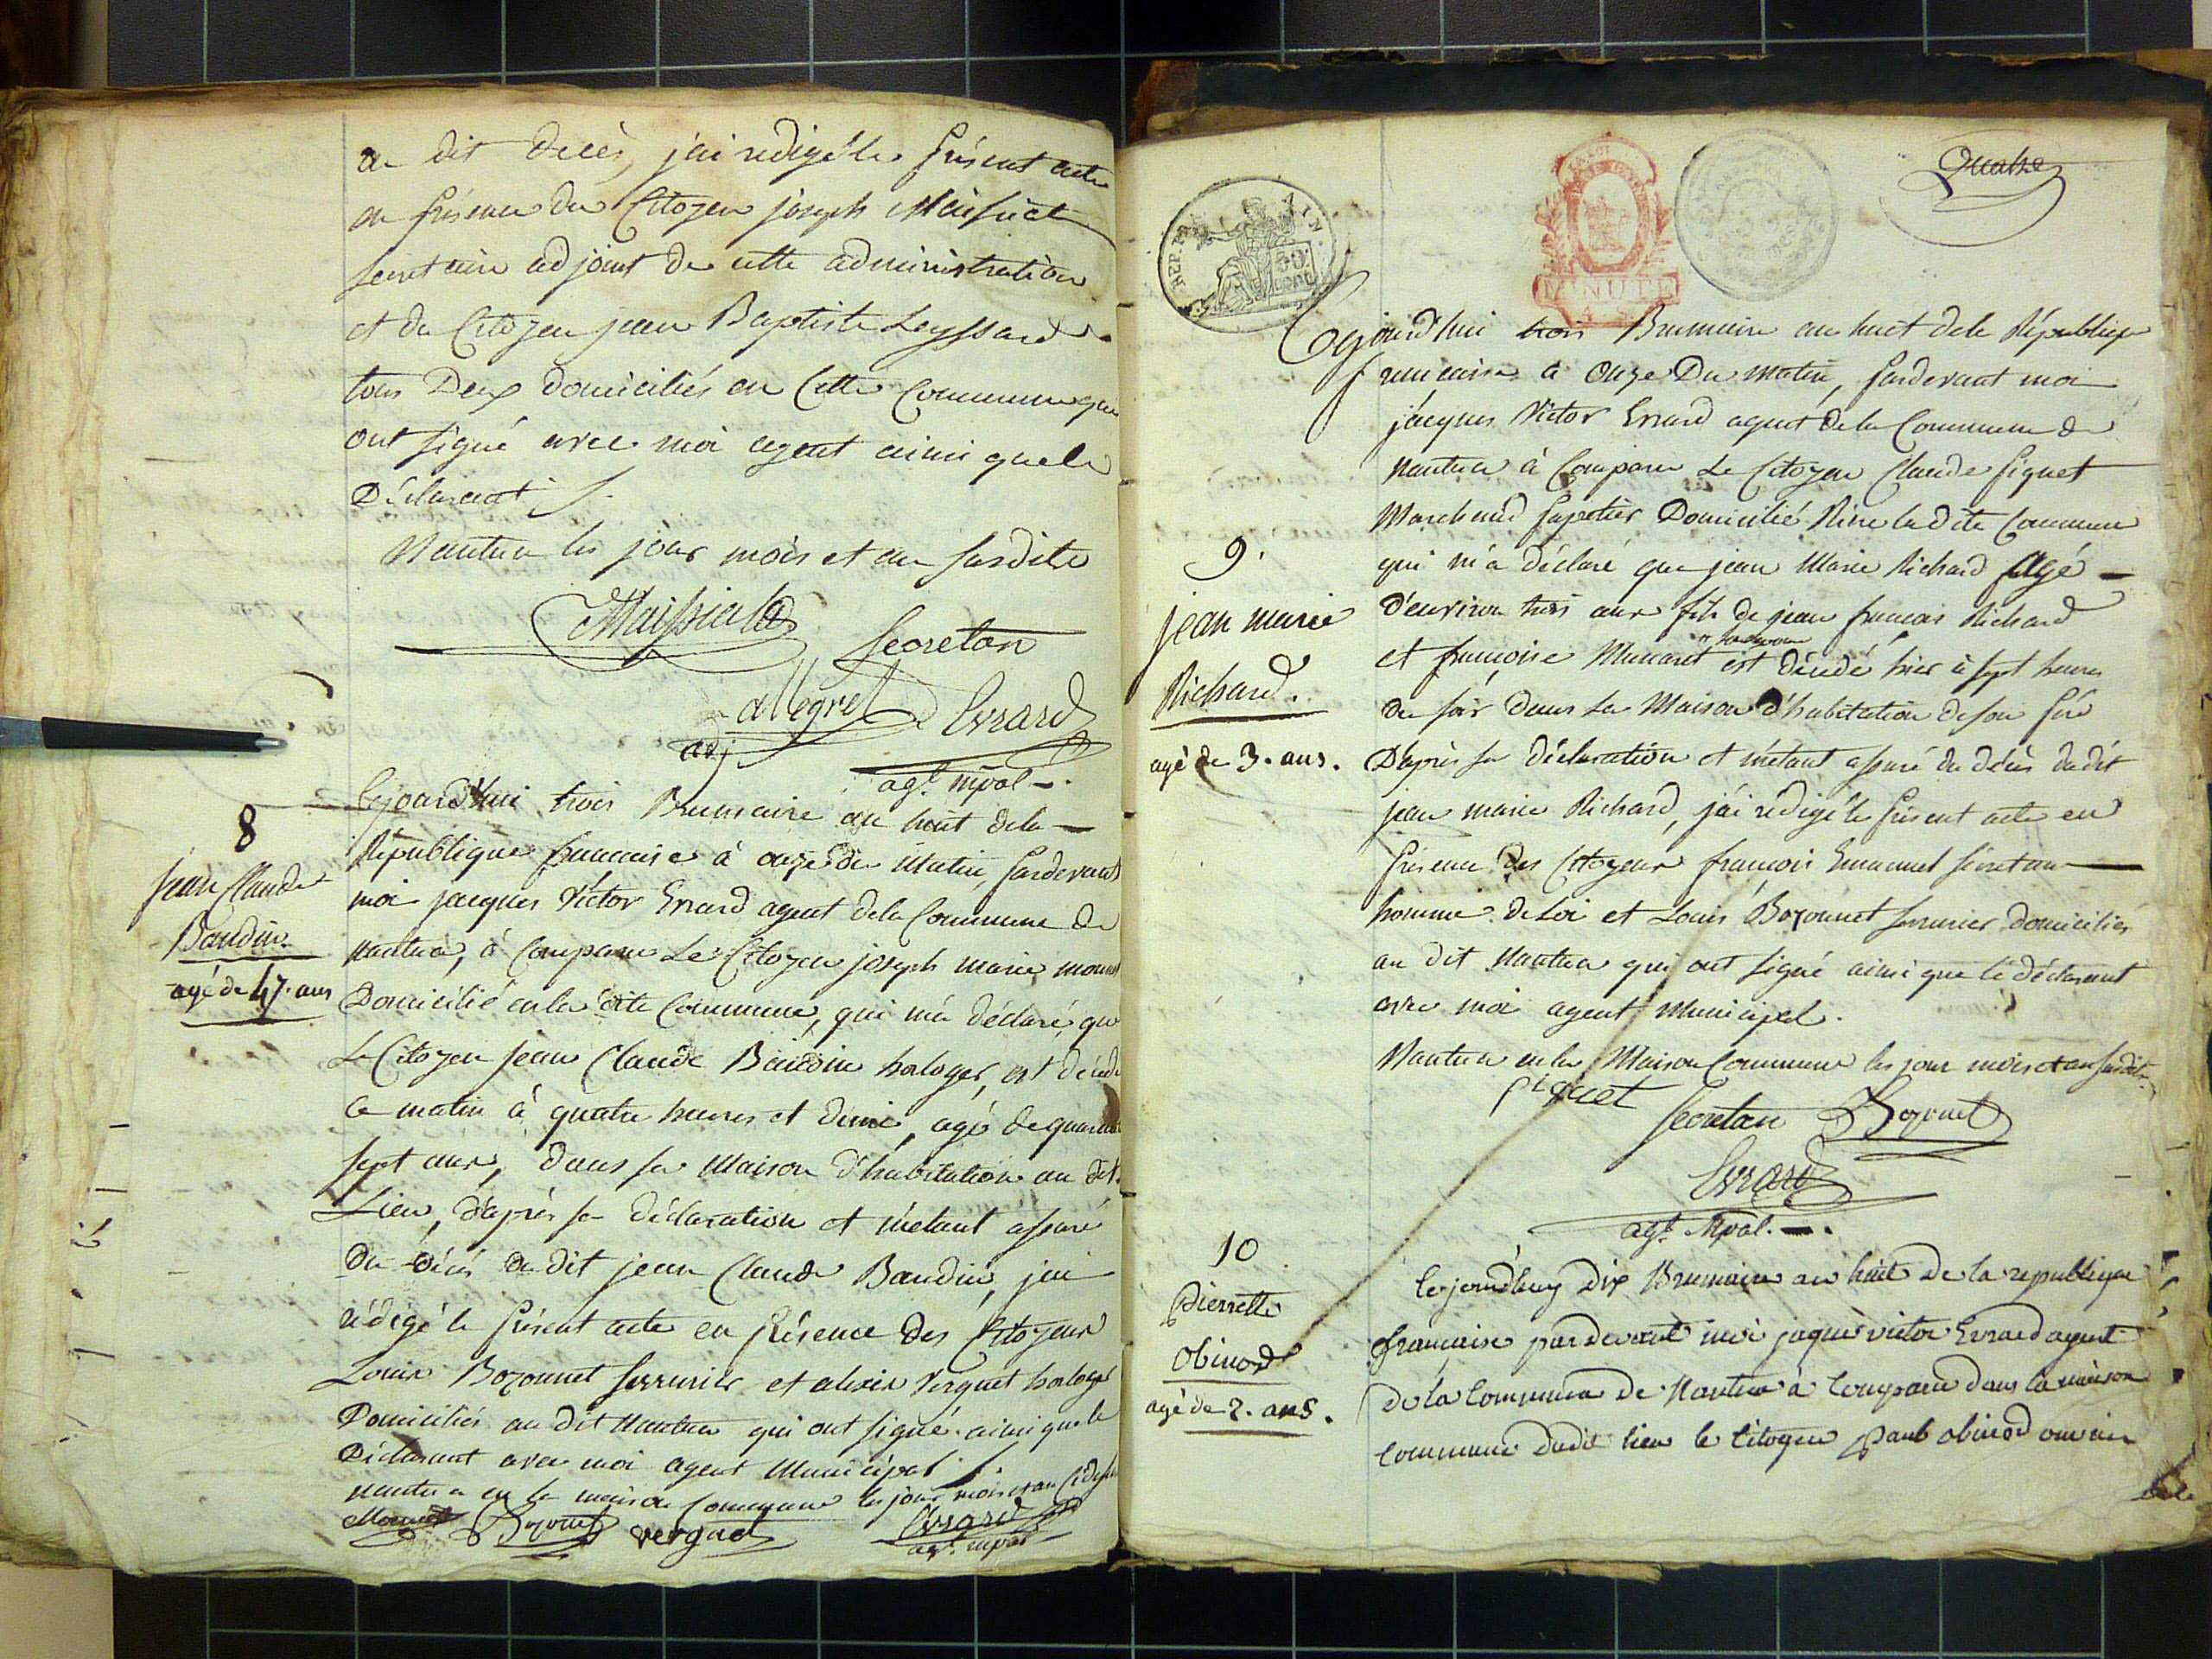 du dit decès, j'ai redigé le présent acte
en présence du Citoyen joseph Maissiat
secretaire adjoint de cette administration
et du Citoyen jean Baptiste Leyssard
tous Deux domiciliés en Cette Commune qui
ont signé avec moi agent ainsi que le
Déclarant
Nantua les jour mois et an susdits
Maissiat
Secretan
allegret
adj
Evrard
agt. mpal
8
jean Claude
Baudin
agé de 47. ans
Cejourd'hui trois Brumaire an huit dela
République francaise à onze du Matin, pardevant
moi jacques Victor Evrard agent dela Commune de
nantua, à Comparu Le Citoyen joseph marie
Domicilié en la dite Commune, qui m'a déclaré que
Le Citoyen Jean Claude Baudin horloger, est décédé
ce matin à quatre heures et demi, agé de quarante
sept ans, dans sa Maison d'habitation au dit
Lieu, d'après sa déclaration et m'etant assuré
du décés du dit jean Claude Baudin, j'ai
rédigé le présent acte en présence des Citoyens
Louis Bozonnet serrurier et alexis Verguet horloger
Domiciliés au dit Nantua qui ont signé ainsi que le
Déclarant avec moi agent Municipal
nantua en la maison Commune les jour mois et an
Bozonet verguet Evrard
agt. mpal
Quatre
REP. FRA.
MINUTE
9.
jean marie
Richard.
agé de 3. ans.
Cejourd'hui trois Brumaire an huit dela République
francaise à onze Du matin, pardevant moi
jacques Victor Evrard agent dela Commune de
nantua à Comparu Le Citoyen Claude Piquet
Marchand papetier Domicilié Rière la dite Commune
qui m'a déclaré que jean Marie Richard agé
d'environ trois ans fils de jean francois Richard
et francoise Munaret est décédé hier à sept heures
du soir dans la Maison d'habitation de son père
D'après sa déclaration et m'étant assuré du décès dudit
jean marie Richard, j'ai rédigé le présent acte en
présence des Citoyens francois Emanuel Sécretan
homme de Loi et Louis Bozonnet serrurier domiciliés
au dit Nantua qui ont signé ainsi que le déclarant
avec moi agent Municipal.
Nantua en la Maison Commune les jour mois et an susdits
Piquet
Secretan Bozonet
Evrard
agt. Mpal.
10
Pierrette
obinord
agé de 2. ans.
Cejourdhuy Dix Brumaire an huit de la republique
française pardevant moi jaque victor Evrard agent
de la Commune de Nantua à Comparu dans la maison
commune dudit lieu le Citoyen Paul obinord